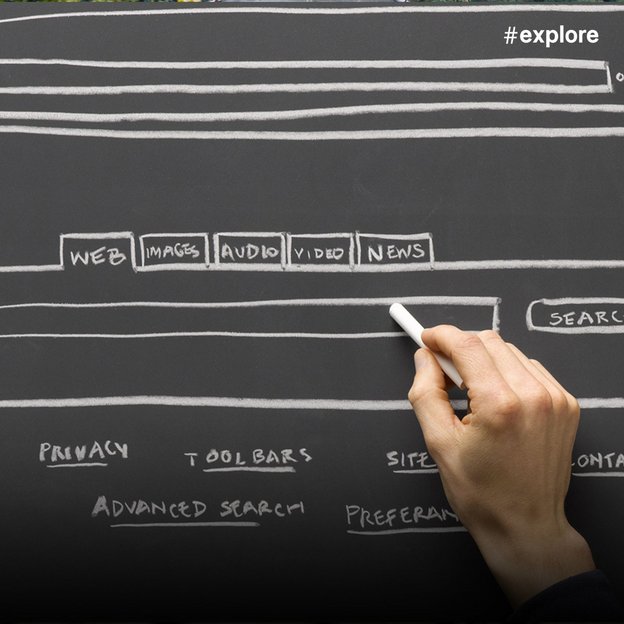 #explore
WEB IMAGES AUDIO VIDEO NEWS
SEARC
PRIVACY TOOLBARS SITE CONTA
ADVANCED SEARCH PREFERAN